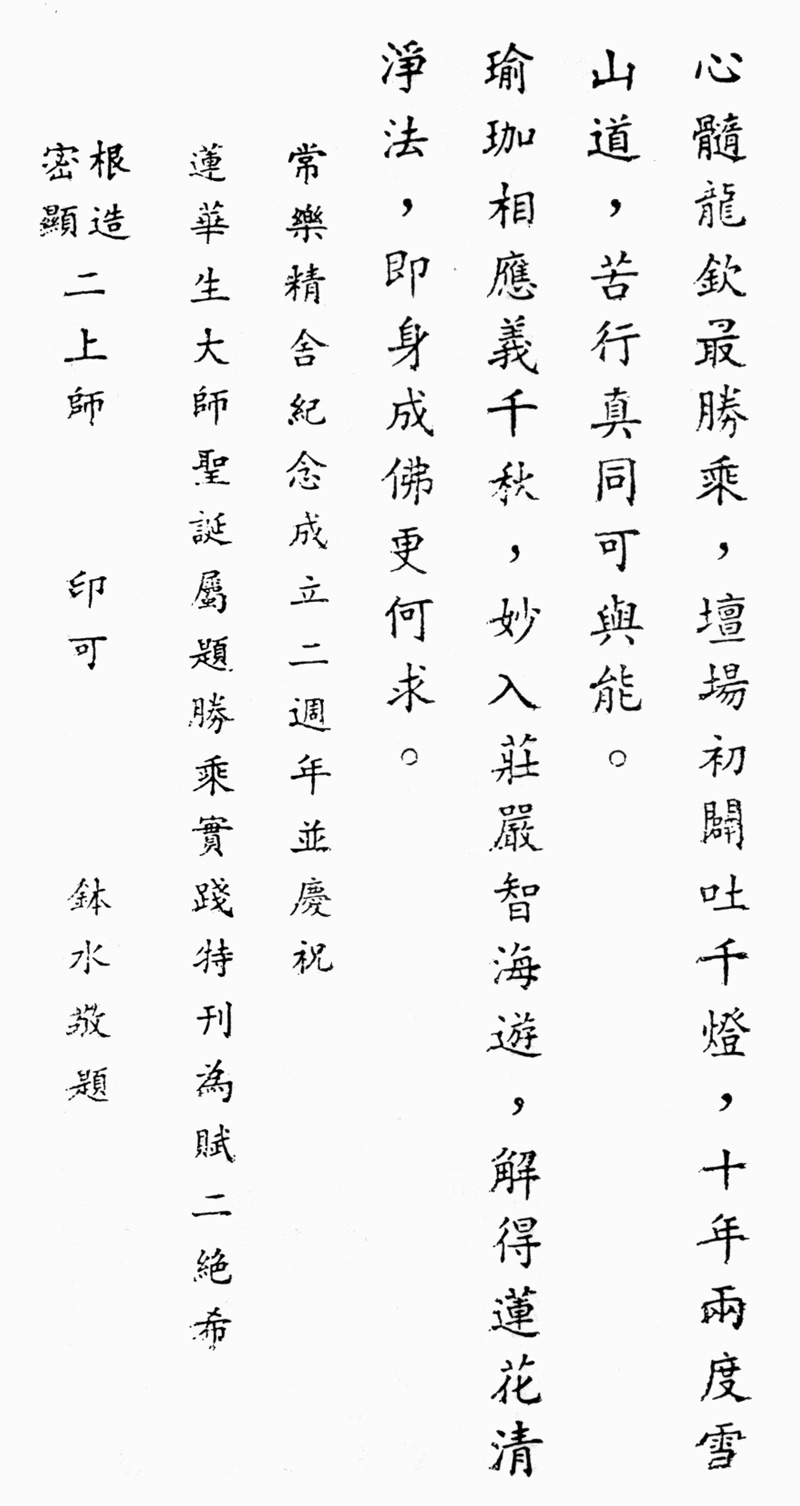 心髓龍欽最勝乘，壇場初闢吐千燈，十年兩度雪
山道，苦行真同可與能。
瑜珈相應義千秋，妙入莊嚴智海遊，解得蓮花清
淨法，即身成佛更何求。
常樂精舍紀念成立二週年並慶祝
蓮華生大師聖誕屬題勝乘實踐特刊為賦二絕希
根造
密顯
二上師 印可 鉢水敬題